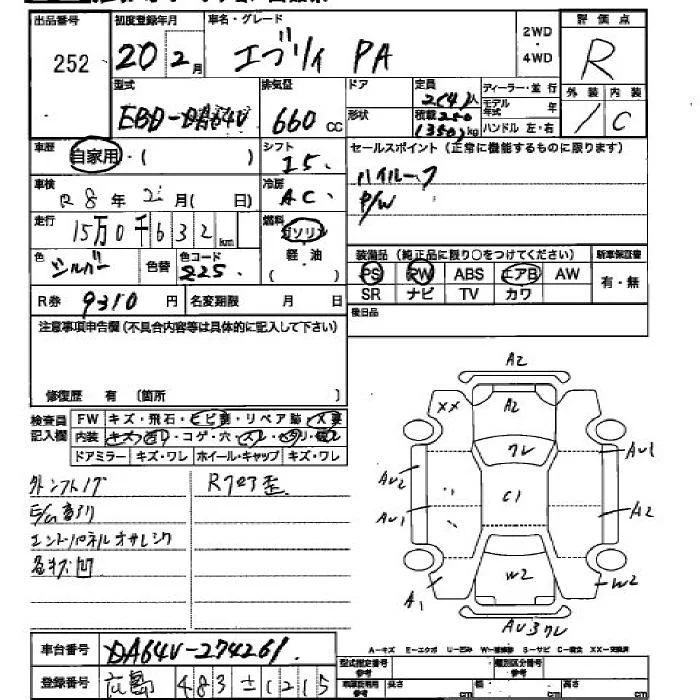 出品番号
252
初度登録年月
20年2月
車名・グレード
エブリィ PA
2WD
・
4WD
評価点
R
型式
EBD-DA64V
排気量
660 cc
ドア
形状
定員
2(4)人
積載 250
(350)kg
ディーラー・並行
モデル年式 年
ハンドル 左・右
外装 内装
/ C
車歴
自家用・( )
シフト
I5.
セールスポイント(正常に機能するものに限ります)
ハイルーフ
P/W
車検
R8年2月( 日)
冷房
AC
走行
15万0千632 km
燃料
ガソリン
軽油
( )
色
シルバー
色替
色コード
225
装備品(純正品に限り○をつけてください)
新車保証書
PS PW ABS エアB AW
有・無
SR ナビ TV カワ
R券 9310円
名変期限 月 日
後日品
注意事項申告欄(不具合内容等は具体的に記入して下さい)
修復歴 有 〔箇所 〕
検査員記入欄
FW キズ・飛石・ヒビ割・リペア跡・X要
内装
ドアミラー キズ・ワレ ホイール・キャップ キズ・ワレ
R7ロア歪
各キズ凹
A2
XX
A2
クレ
AU1
AU2
C1
AU1
A2
W2
A1
W2
AU3 クレ
車台番号
DA64V-274261
登録番号
広島 483 と1215
A-キズ E-エクボ U-凹み W-補修跡 S-サビ C-腐食 XX-交換済
型式指定番号
参考
類別区分番号
参考
参考
長さ cm
幅 cm
高さ cm